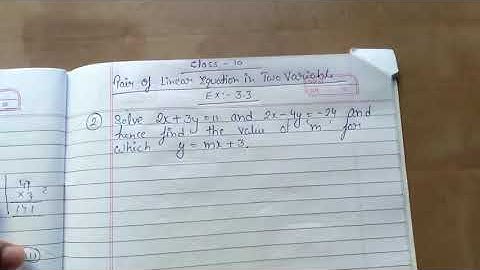 Class - 10
Pair of Linear Equation in Two Variable
Ex:- 3.3
② Solve 2x + 3y = 11 and 2x - 4y = -24 and
hence find the value of 'm' for
which y = mx + 3.
47
x 3
141
(11)